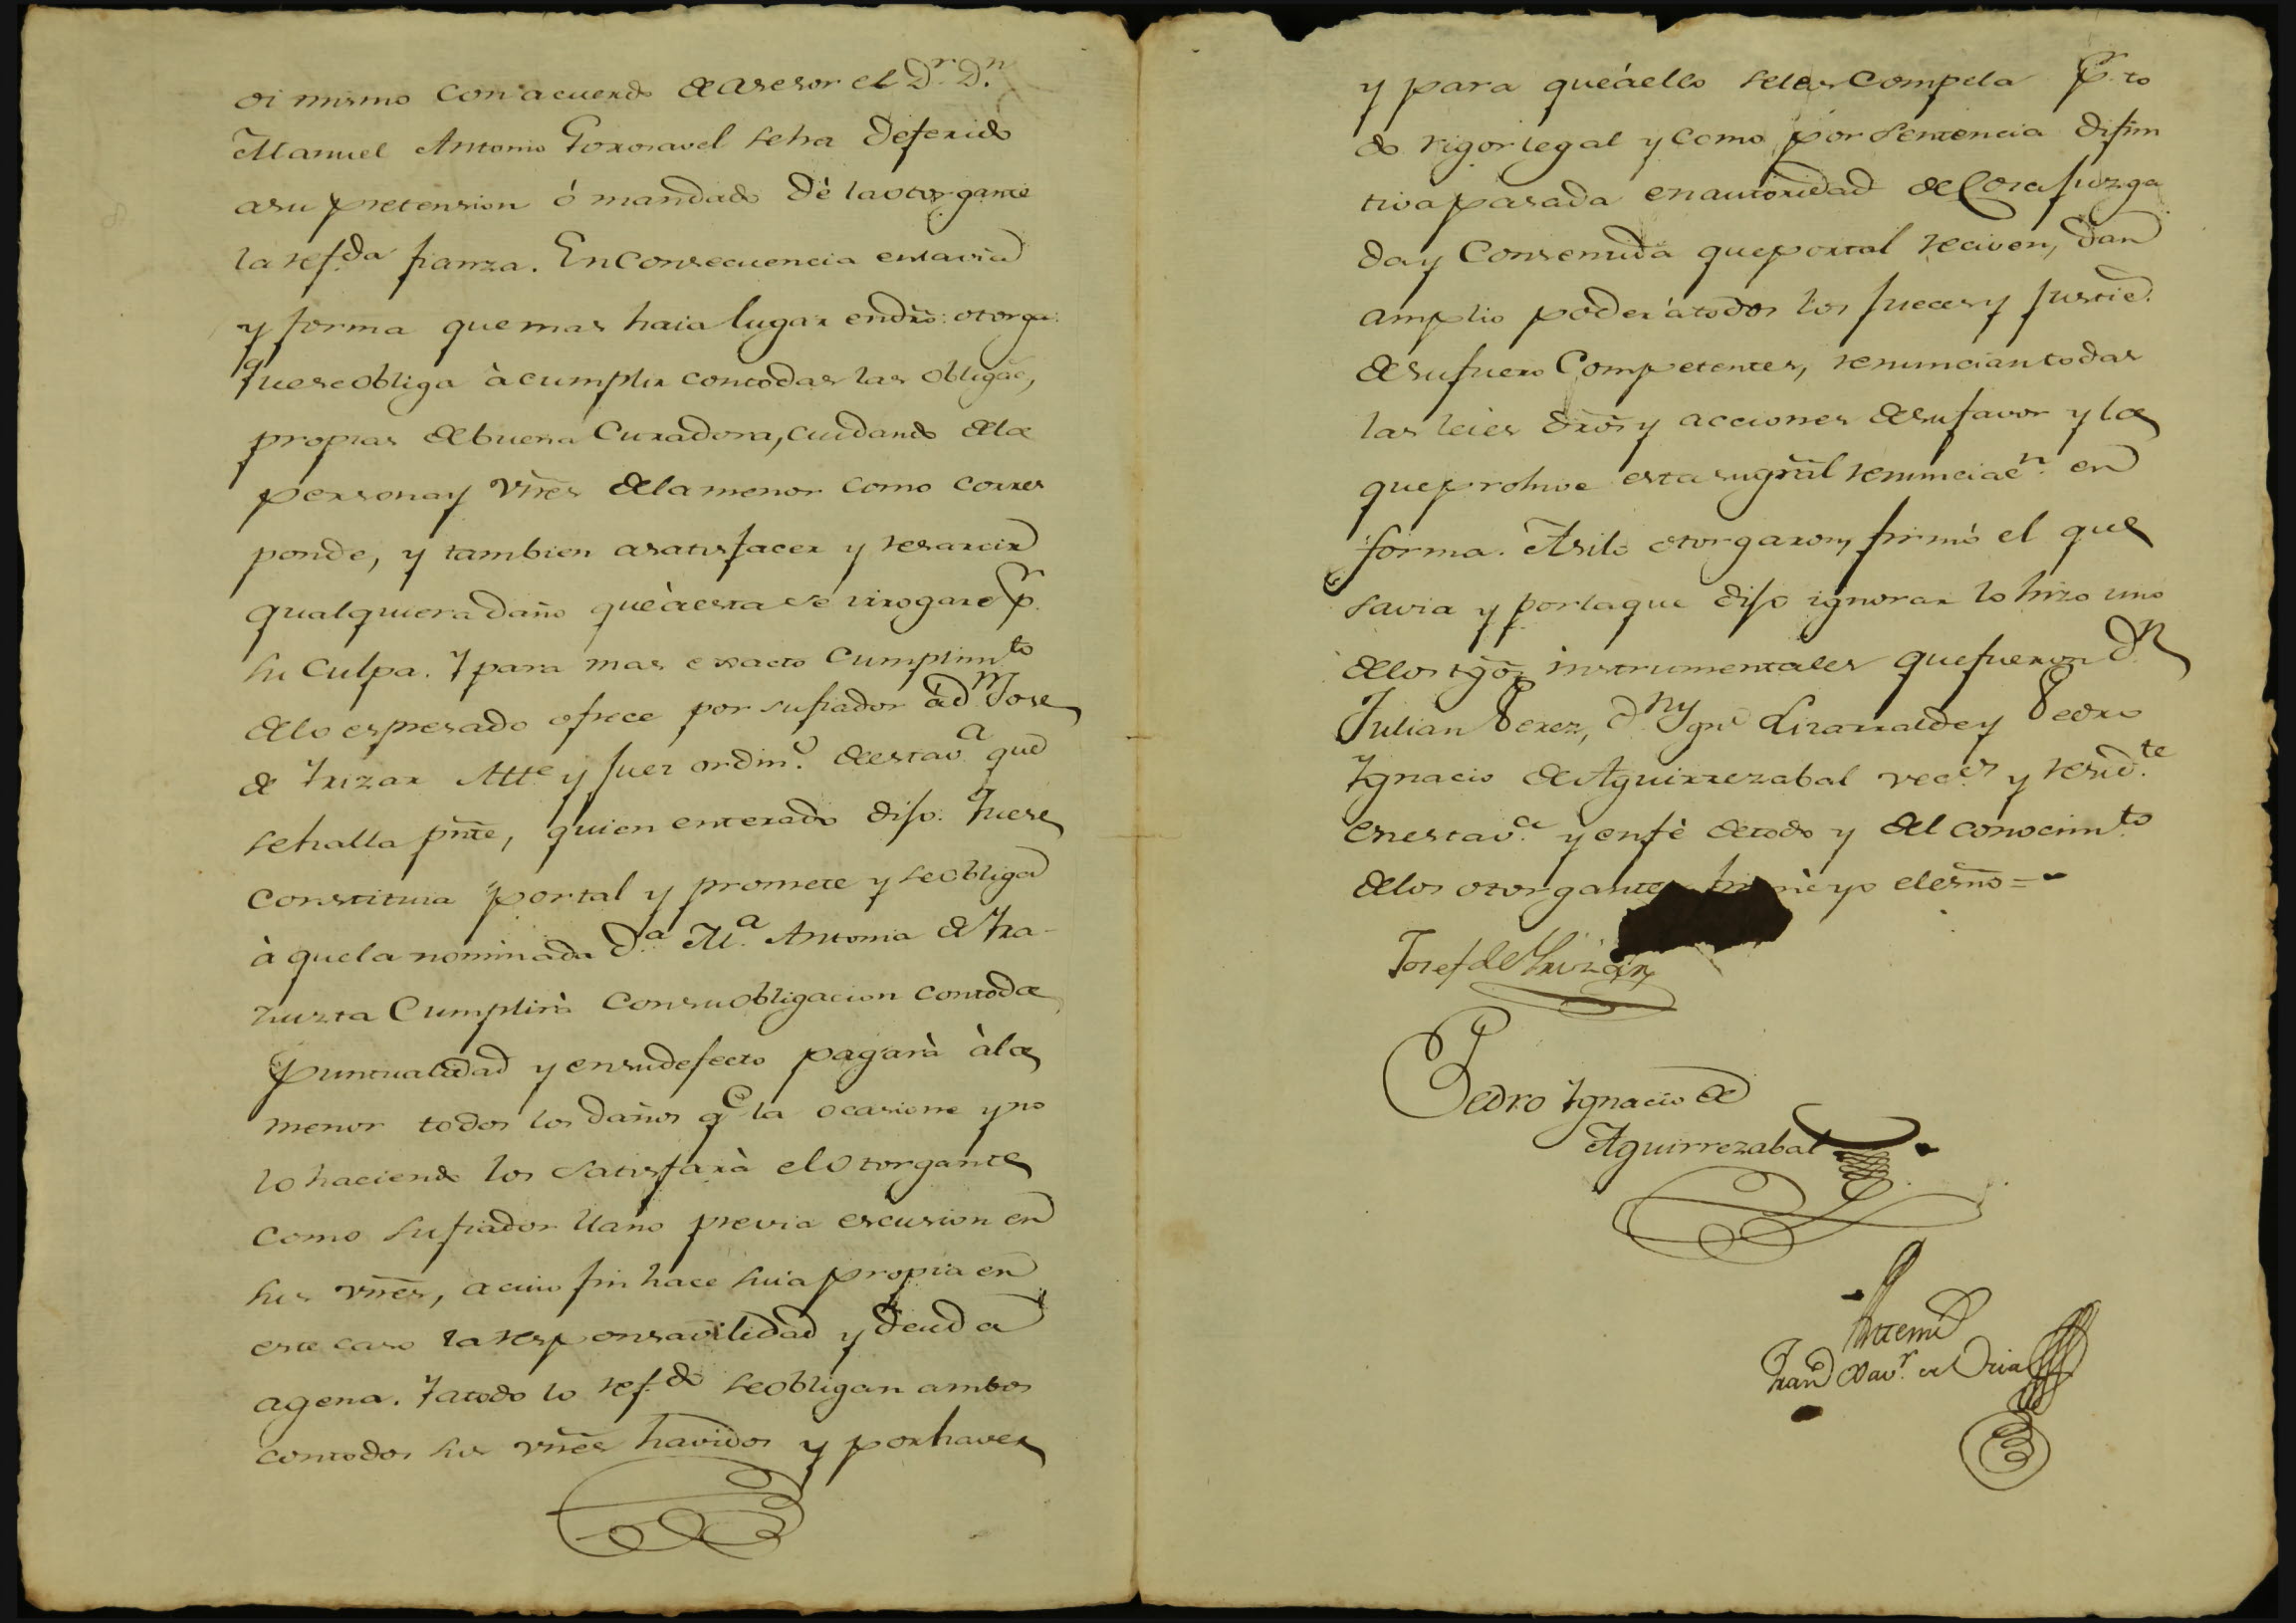 oi mismo con acuerdo de asesor el Dr. Dn.
Manuel Antonio se ha deferido
a su pretension ó mandado dé la otorgante
la refda. fianza. En consecuencia en la via
y forma que mas haia lugar en dro: otorga:
que se obliga à cumplir con todas las obligac,
propias de buena Curadora, cuidando de la
persona y vnes de la menor como corres
ponde, y tambien a satisfacer y resarcir
qualquiera daño que à esta se irrogare pr.
su culpa. Y para mas exacto cumplimto
de lo espresado ofrece por su fiador à dn Jose
de Yrizar Alte. y Juez ordino. de esta va. que
se halla pnte, quien enterado dijo: Que se
constituia por tal y promete y se obliga
à que la nominada Da. Ma. Antonia de Yra-
zusta cumplirà con su obligacion con toda
puntualidad y en su defecto pagarà à la
menor todos los daños qe la ocasione y no
lo haciendo los satisfarà el otorgante
como su fiador llano previa escusion en
sus vnes, a cuio fin hace suia propia en
este caso la responsavilidad y deuda
agena. Y a todo lo refdo. se obligan ambos
con todos sus vnes havidos y por haver
y para que à ello se les compela pr. to
do rigor legal y como por sentencia difini
tiva pasada en autoridad de Cosa juzga
da y consentida que por tal reciven, dan
amplio poder à todos los Jueces y Justic.
de su fuero Competentes, renuncian todas
las leies dros y acciones de su favor y la
que prohive esta su gral renunciacn. en
forma. Asi lo otorgaron, firmó el que
savia y por la que dijo ignorar lo hizo uno
de los tgos instrumentales que fueron Dn.
Julian Perez, Dn. Ygno Lizarralde y Pedro
Ygnacio de Aguirrezabal veces. y residte.
en esta va. y en fè de todo y del conocimto.
de los otorgantes firmè yo el esno =
Josef de Yrizar
Pedro Ygnacio de
Aguirrezabal
Antemi
Xavr. de Oria